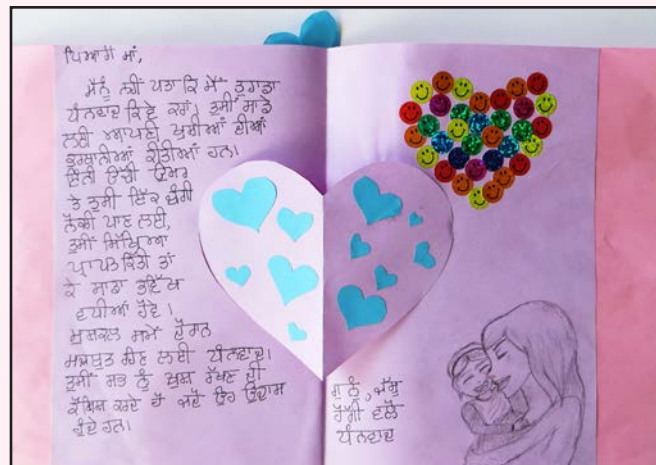 ਪਿਆਰੀ ਮਾਂ,
ਮੈਨੂੰ ਨਹੀਂ ਪਤਾ ਕਿ ਮੈਂ ਤੁਹਾਡਾ
ਧੰਨਵਾਦ ਕਿਵੇਂ ਕਰਾਂ। ਤੁਸੀਂ ਸਾਡੇ
ਲਈ ਆਪਣੀ ਖੁਸ਼ੀਆਂ ਦੀਆਂ
ਕੁਰਬਾਨੀਆਂ ਕੀਤੀਆਂ ਹਨ।
ਇੰਨੀ ਉਮਰ
ਤੇ ਤੁਸੀਂ ਇੱਕ ਚੰਗੀ
ਨੌਕਰੀ ਪਾਣ ਲਈ,
ਤੁਸੀਂ ਸਿੱਖਿਆ
ਪ੍ਰਾਪਤ ਕਿੱਤੀ ਤਾਂ
ਕੇ ਸਾਡਾ ਭਵਿੱਖ
ਵਧੀਆ ਹੋਵੇ।
ਮੁਸ਼ਕਲ ਸਮੇਂ ਦੌਰਾਨ
ਮਜ਼ਬੂਤ ਹੋਣ ਲਈ ਧੰਨਵਾਦ।
ਤੁਸੀਂ ਸਭ ਨੂੰ ਖੁਸ਼ ਰੱਖਣ ਦੀ
ਕੋਸ਼ਿਸ਼ ਕਰਦੇ ਹੋ ਜਦੋਂ ਉਹ ਉਦਾਸ
ਹੁੰਦੇ ਹਨ।
ਵਲੋਂ
ਧੰਨਵਾਦ